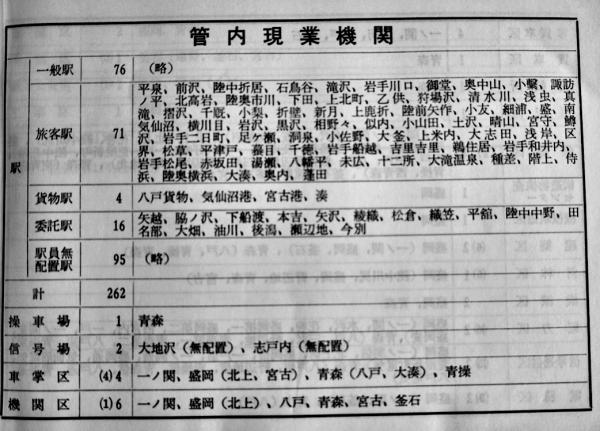 管内現業機関
駅
一般駅 76 （略）
旅客駅 71
平泉、前沢、陸中折居、石鳥谷、滝沢、岩手川口、御堂、奥中山、小繋、諏訪
ノ平、北高岩、陸奥市川、下田、上北町、乙供、狩場沢、清水川、浅虫、真
滝、摺沢、千厩、小梨、折壁、新月、上鹿折、陸前矢作、小友、細浦、盛、南
気仙沼、横川目、岩沢、黒沢、相野々、似内、小山田、土沢、晴山、宮守、鱒
沢、岩手二日町、足ケ瀬、洞泉、小佐野、大釜、上米内、大志田、浅岸、区
界、松草、平津戸、蟇目、千徳、岩手船越、吉里吉里、鵜住居、岩手和井内、
岩手松尾、赤坂田、湯瀬、八幡平、末広、十二所、大滝温泉、種差、階上、侍
浜、陸奥横浜、大湊、奥内、蓬田
貨物駅 4 八戸貨物、気仙沼港、宮古港、湊
委託駅 16
矢越、脇ノ沢、下船渡、本吉、矢沢、綾織、松倉、織笠、平舘、陸中中野、田
名部、大畑、油川、後潟、瀬辺地、今別
駅員無
配置駅 95 （略）
計 262
操車場 1 青森
信号場 2 大地沢（無配置）、志戸内（無配置）
車掌区 (4)4 一ノ関、盛岡（北上、宮古）、青森（八戸、大湊）、青操
機関区 (1)6 一ノ関、盛岡（北上）、八戸、青森、宮古、釜石